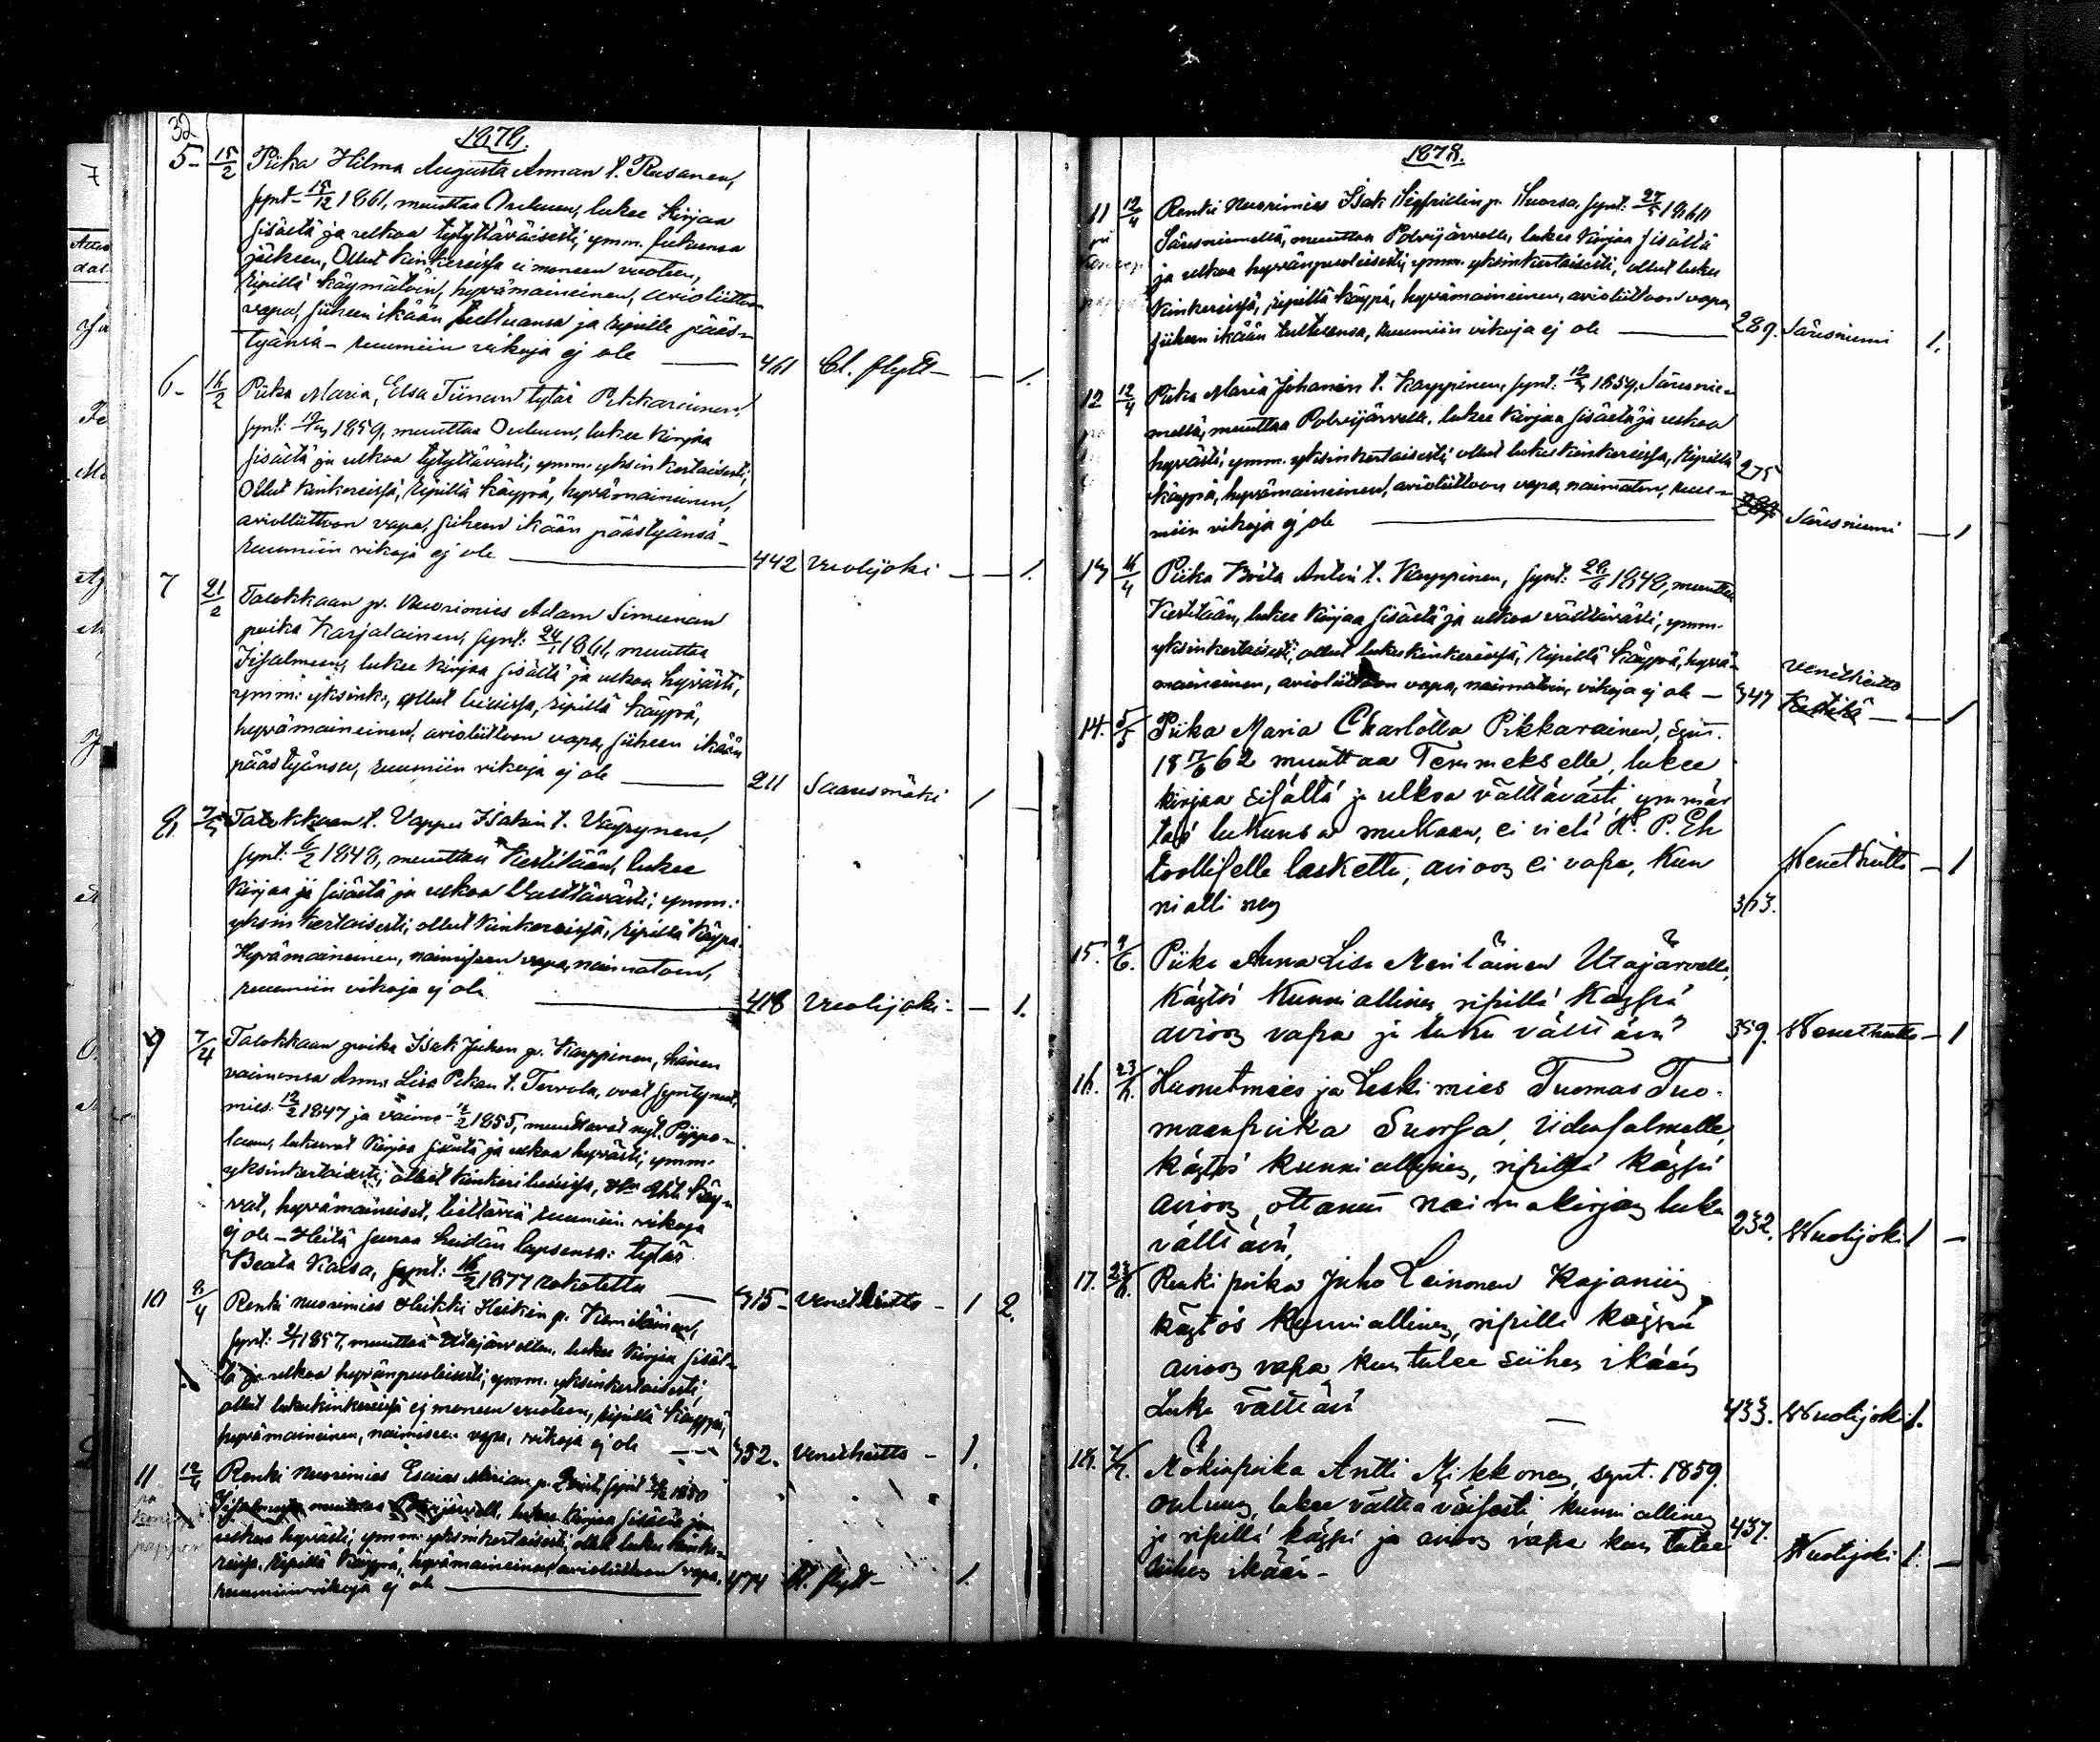 32
1878.
5- 15/2 Piika Hilma Augusta Annan t. Rusanen,
synt. 15/12 1861, muuttaa Ouluun, lukee kirjaa
sisältä ja ulkoa tyytyttäväisesti, ymm. lukunsa
jälkeen, Ollut kinkereissä ei moneen vuoteen,
ripillä käymätöin, hyvämaineinen, avioliittoon
vapa, siihen ikään tultuansa ja ripille pääs-
tyänsä - ruumiin vikoja ej ole — 461 Ct. flytt - — 1.
6- 16/2 Piika Maria, Elsa Tiinan tytär Pikkarainen,
1859, muuttaa Ouluun, lukee kirjaa
sisältä ja ulkoa tytyttävästi, ymm. yksinkertaisesti,
Ollut kinkereissä, ripillä käypä, hyvämaineinen,
avioliittoon vapa, siihen ikään päästyänsä -
ruumiin vikoja ej ole — 442 Vuolijoki — — 1.
7 21/2 Talokkaan p. Nuorimies Adam Simunan
poika Karjalainen, synt: 1861, muuttaa
Iisalmeen, lukee kirjaa sisältä ja ulkoa hyvästi,
ymm: yksink., ollut ripillä käypä,
hyvämaineinen, avioliittoon vapa, siihen ikään
päästyänsä, ruumiin vikoja ej ole — 211 Saaresmäki 1 —
8 Talokkaan t. Vappu Isakin t. Väyrynen,
synt: 6/2 1848, muuttaa Kestilään, lukee
kirjaa ja sisältä ja ulkoa välttävästi; ymm:
yksinkertaisesti; ollut kinkereissä, ripillä käypä.
Hyvämaineinen, naimiseen vapa, naimatoin,
ruumiin vikoja ej ole — 418 Vuolijoki - — 1.
9 7/4 Talokkaan poika Isak Juhon p. Karppinen, hänen
vaimonsa Anna Lisa Pekan t. Tervola, ovat syntyneet,
mies 12/2 1847 ja vaimo 1855, muuttavat nyt. Piippo-
laan, lukevat kirjaa sisältä ja ulkoa hyvästi, ymm.
yksinkertaisesti, olleet kinkeri käy-
vät, hyvämaineiset, tiettäviä ruumiin vikoja
ej ole - Heitä seuraa heidän lapsensa: tytär
Beata Kaisa, synt: 16/2 1877 rokotettu — 315 - Venetheitto - 1 2.
10 8/4 Renki nuorimies Heikki Heikin p. Kemiläinen,
synt: 1857, muuttaa Utajärvellen, lukee kirjaa sisäl-
tä ja ulkoa hyvänpuoleisesti, ymm. yksinkertaisesti,
ollut lukukinkereissä ej moneen vuoteen, ripillä käyppä,
hyvämaineinen, naimiseen vapa, vikoja ej ole — 352. Venetheitto - 1.
11 12/4 Renki nuorimies Esaias Marian p. synt 1850
muuttaa lukee kirjaa sisältä ja
ulkoa hyvästi, ymm: yksinkertaisesti, ollut luku kinke-
reissä, ripillä käyppä, hyvämaineinen avioliittoon vapa,
ruumiin vikoja ej ole — 474 Ct. flytt - 1.
1878.
11 12/4 Renki Nuorimies Isak Sigfridin p. Huorsa, synt: 27/5 1860
Säresniemellä, muuttaa Polvijärvelle, lukee kirjaa sisältä
ja ulkoa hyvänpuoleisesti, ymm. yksinkertaisesti, ollut luku
kinkereissä, ripillä käypä, hyvämaineinen, avioliittoon vapa,
siihen ikään tultuansa, ruumiin vikoja ej ole — 289. Säresniemi 1.
12 12/4 Piika Maria Johannin t. Karppinen, synt: 1859, Säresnie-
mellä, muuttaa Polvijärvelle, lukee kirjaa sisältä ja ulkoa
hyvästi, ymm. yksinkertaisesti, ollut lukukinkereissä, ripillä 275
käyppä, hyvämaineinen, avioliittoon vapa, naimaton, ruu-
miin vikoja ej ole — Säresniemi — 1
13 16/4 Piika Brita Antin t. Karppinen, synt: 1848, muuttaa
Kestilään, lukee kirjaa sisältä ja ulkoa välttävästi, ymm.
yksinkertaisesti, ollut lukukinkereissä, ripillä käypä, hyvä-
maineinen, avioliittoon vapa, naimatoin, vikoja ej ole — 347 Venetheitto Kestilä — — 1
14. 5/5 Piika Maria Charlotta Pikkarainen, synt.
18 17/6 62 muuttaa Temmekselle, lukee
kirjaa sisältä ja ulkoa välttävästi ymmär
tää lukunsa mukaan, ei vielä H. P. Eh
toolliselle laskettu, avioon ei vapa, kun
nialli nen 363. Wenetheitto — 1
15. 9/6. Piika Anna Lisa Meriläinen Utajärvelle,
käytös kunniallinen ripillä käypä
avioon vapa ja luku välttävä 359. Wenetheitto — 1
16. Huonetmies ja Leski mies Tuomas Tuo-
maanpoika Suorsa, Iidensalmelle,
käytös kunniallinen, ripillä käypä
avioon, ottanut naimakirjan luku
välttävä, 232. Wuolijoki 1 —
17. Renki poika Juho Leinonen Kajaniin,
käytös kunniallinen, ripille käypä
avioon vapa kun tulee siihen ikään
Luku välttävä — 433. Wuolijoki 1.
18. Mökinpoika Antti Mikkonen, synt. 1859.
ouluun, lukee välttäväisesti kunniallinen
ja ripillä käypä ja avioon vapa kun tulee 437.
siihen ikään - Wuolijoki 1. —